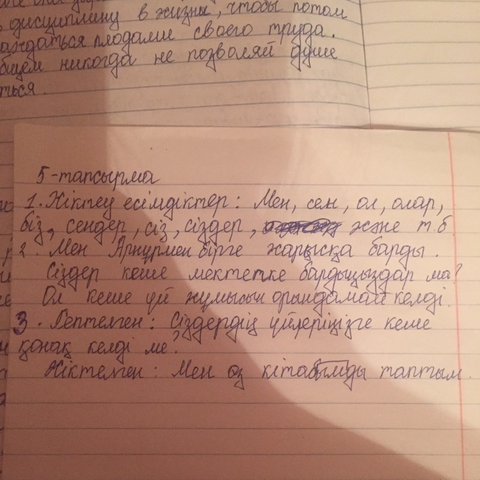 дисциплину в жизни, чтобы потом
плодами своего труда.
никогда не позволяй душе
ться.
5-тапсырма
1. Жіктеу есімдіктер: Мен, сен, ол, олар,
біз, сендер, сіз, сіздер, және т.б
2. Мен Арнұрмен бірге жарысқа барды.
Сіздер кеше мектепке бардыңыздар ма?
Ол кеше үй жұмысын орындамай келді.
3. Септелген: Сіздердің үйлеріңізге кеше
қонақ келді ме?
Жіктелген: Мен өз кітабымды таптым.